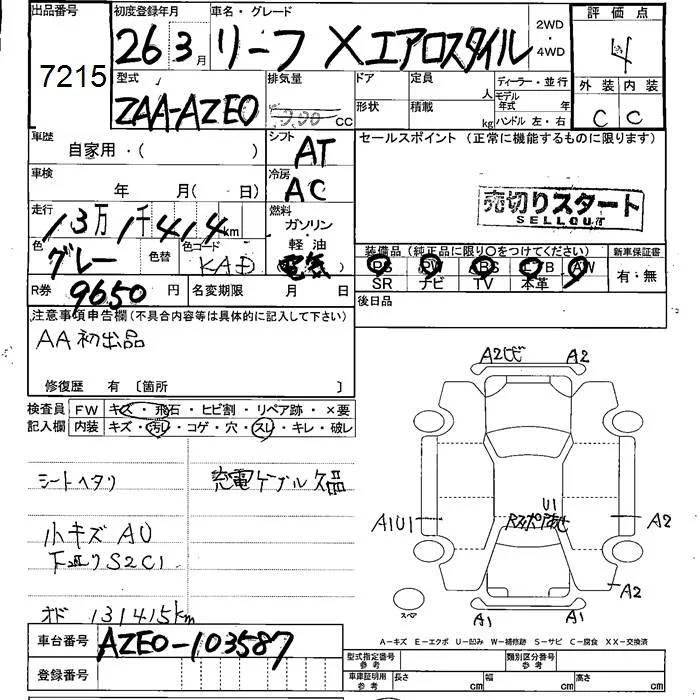 出品番号 7215
初度登録年月 26 3月
車名・グレード リーフ Xエアロスタイル
2WD・4WD
評価点 4
外装 内装
C C
型式 ZAA-AZE0
排気量 cc
ドア 形状
定員 人
積載 kg
ディーラー・並行
モデル年式 年
ハンドル 左・右
車歴 自家用・( )
シフト AT
セールスポイント (正常に機能するものに限ります)
車検 年 月( 日)
冷房 AC
売切りスタート
SELLOUT
走行 13万1千414km
燃料 ガソリン
軽油
電気
色 グレー
色替
色コード KAD
装備品(純正品に限り○をつけてください)
PS PW ABS エアB AW
SR ナビ TV 本革
新車保証書
有・無
R券 9650円
名変期限 月 日
後日品
注意事項申告欄(不具合内容等は具体的に記入して下さい)
AA初出品
修復歴 有〔箇所 〕
検査員 FW キズ・飛石・ヒビ割・リペア跡・×要
記入欄 内装 キズ・汚レ・コゲ・穴・スレ・キレ・破レ
シートヘタリ
充電ケーブル欠品
小キズAU
下廻りS2C1
オド 131415km
A2ビビ A2
A1U1
U1
A2
A2
スペア
A1 A1
A−キズ E−エクボ U−凹み W−補修跡 S−サビ C−腐食 XX−交換済
車台番号 AZE0-103587
登録番号
型式指定番号 参考
類別区分番号 参考
車庫証明用 参考
長さ cm
幅 cm
高さ cm